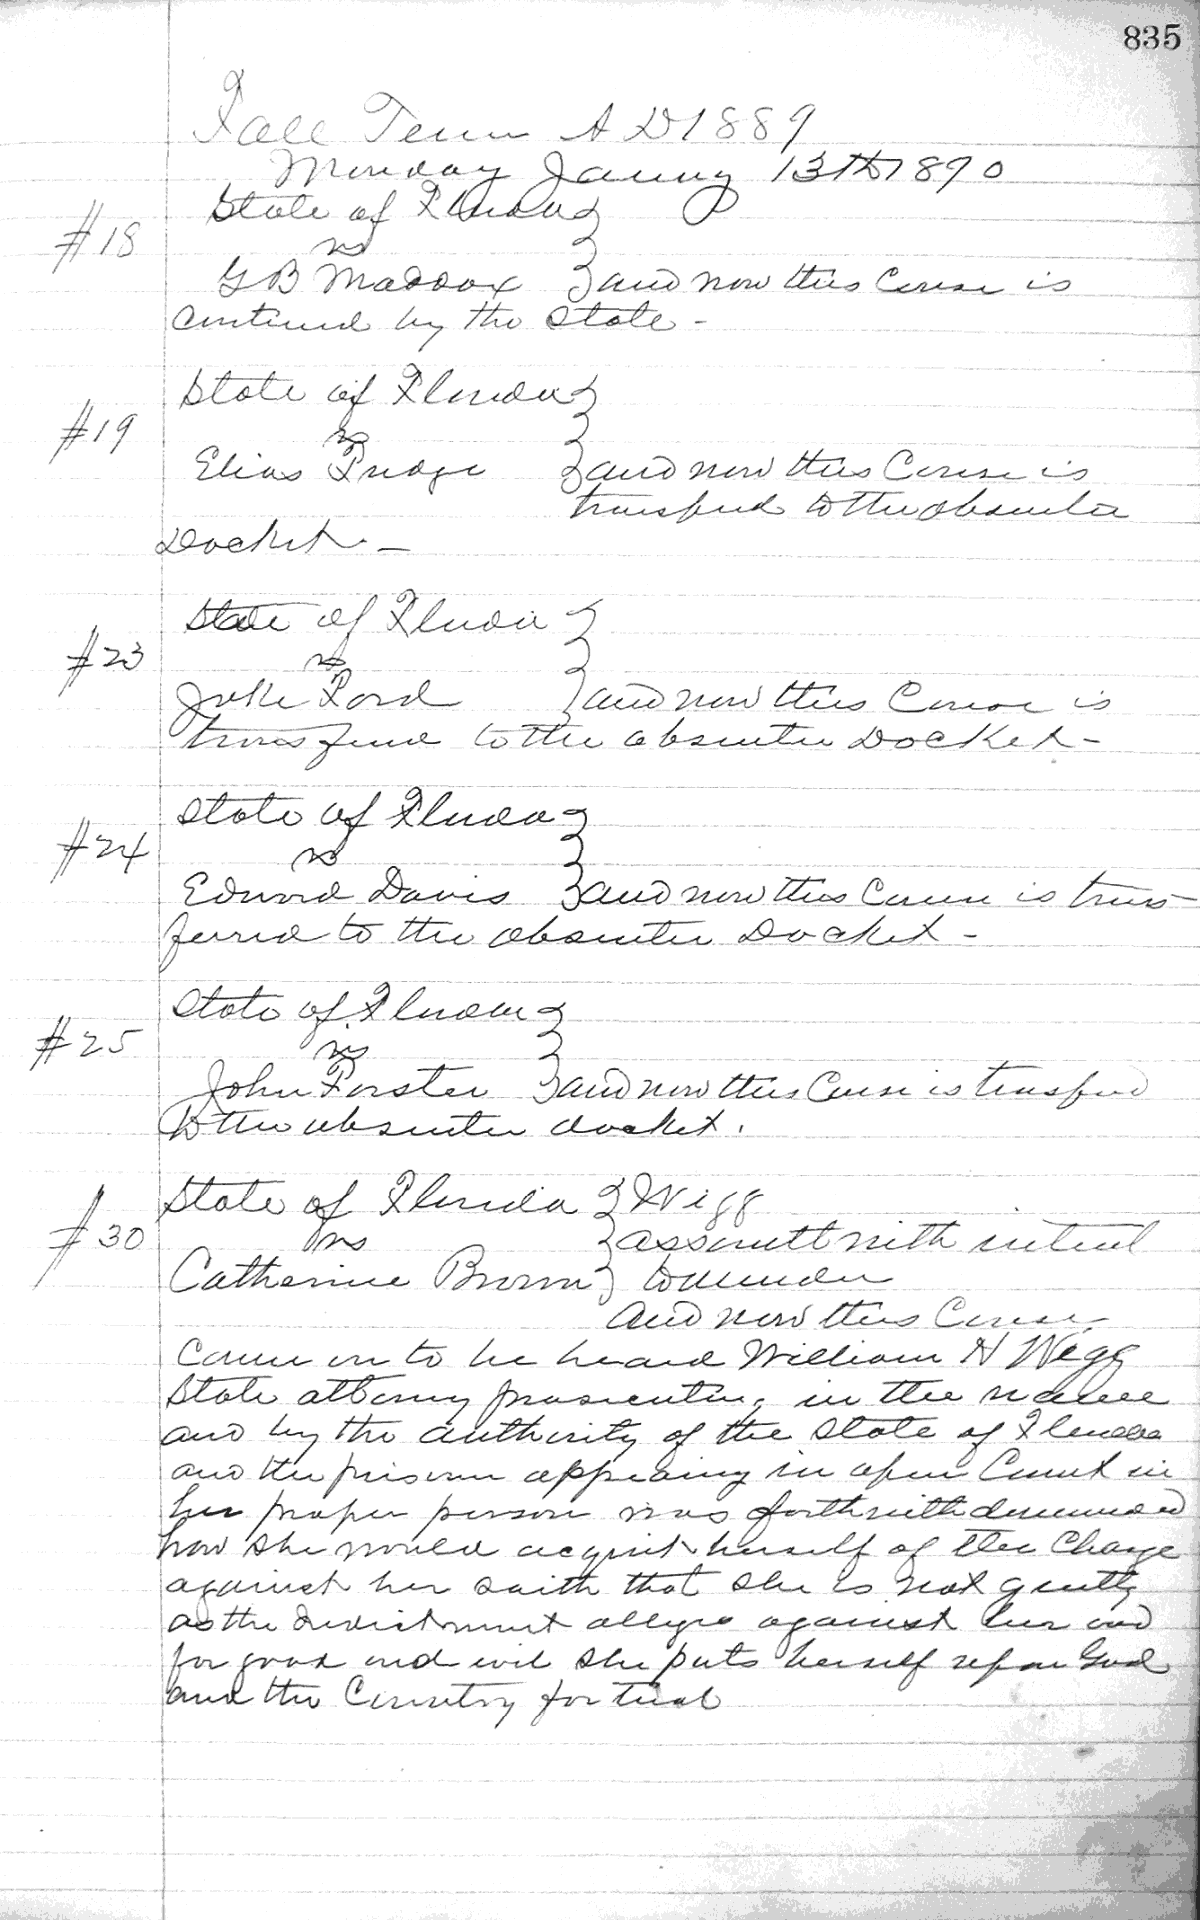 835
Fall Term A D 1889
Monday Januy 13th 1890
State of Florida
#18
vs
G B Maddox } and now this Cause is
continued by the State -
State of Florida
#19
vs
Elias } and now this Cause is
transferd to the absentee
Docket. -
State of Florida
#23
vs
Jake Ford } and now this Cause is
transferred to the absentee Docket -
State of Florida
#24
vs
Edward Davis } and now this Cause is trans-
ferred to the absentee Docket -
State of Florida
#25
vs
John Forster } and now this Cause is transferd
to the absentee docket.
State of Florida } Wigg
#30
vs } assault with intent
Catherine Brown } to murder
and now this Cause
came on to be heard William H Wigg
State attorney prosecuting in the name
and by the authority of the State of Florida
and the prisoner appearing in open Court in
her proper person was forthwith demanded
how she would acquit herself of the Charge
against her saith that she is not guilty
as the Indictment alleges against her and
for good and evil she puts herself upon God
and the Country for trial